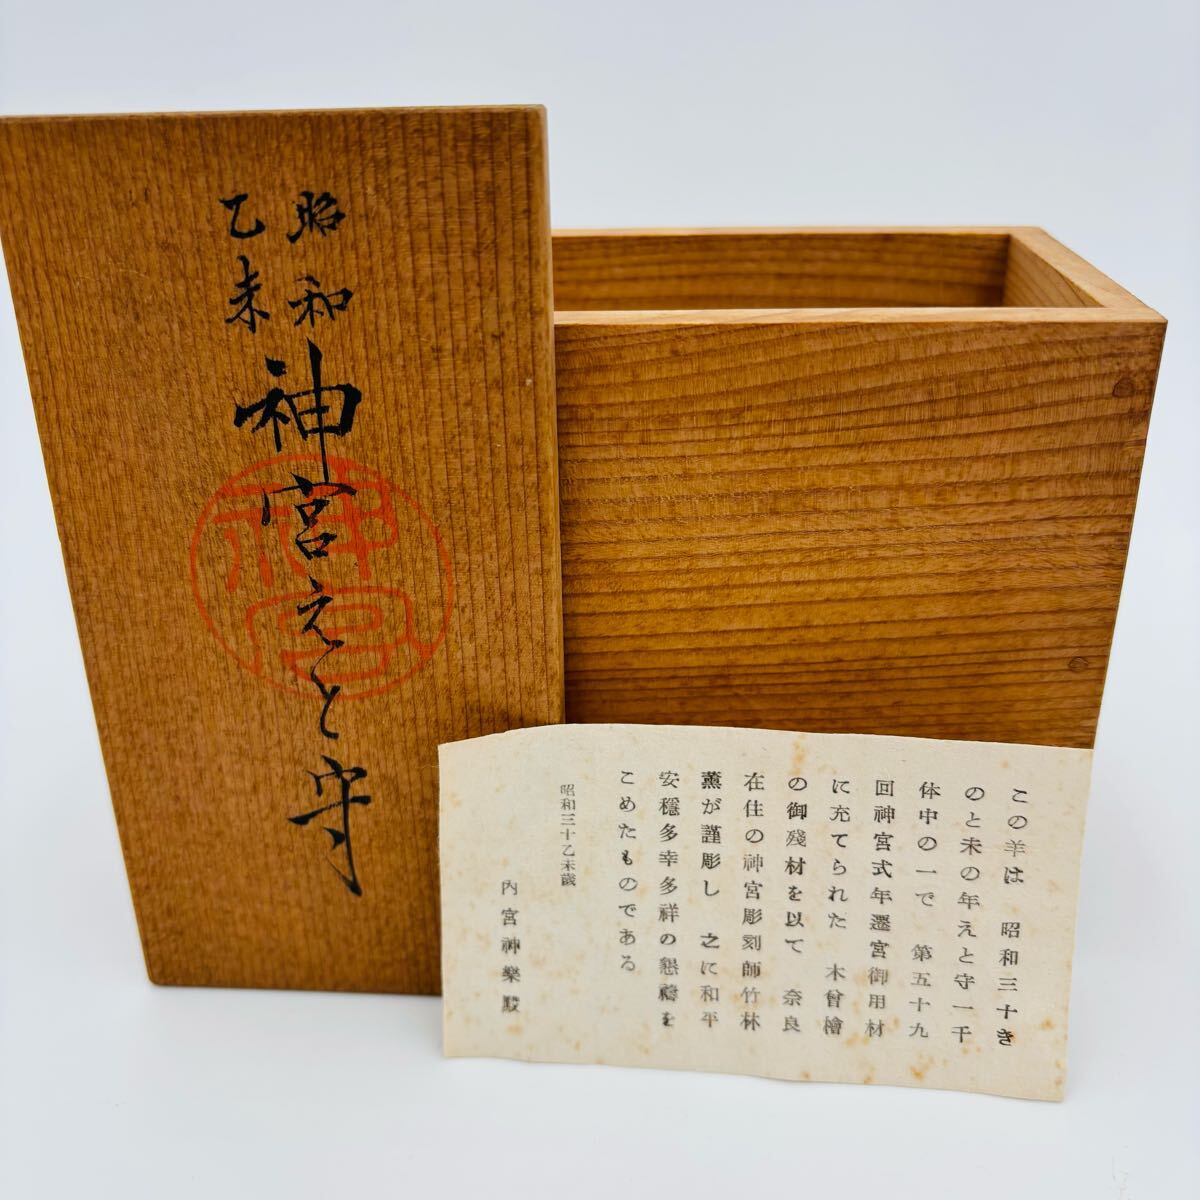 昭和
乙未
神宮えと守
神宮
この羊は　昭和三十き
のと未の年えと守一千
体中の一で　第五十九
回神宮式年遷宮御用材
に充てられた　木曾檜
の御殘材を以て　奈良
在住の神宮彫刻師竹林
薫が謹彫し　之に和平
安穩多幸多祥の懇禱を
こめたものである
昭和三十乙未歲
內宮神樂殿